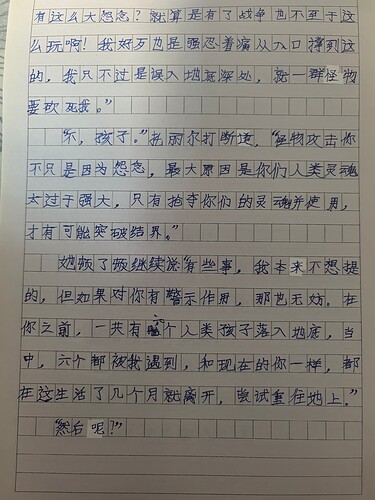 有这么大怨念？就算是有了战争也不至于这
么玩啊！我好歹也是强忍着痛从入口撑到这
的，我只不过是误入地底深处，就一群怪物
要砍死我。”
“不，孩子。”托丽尔打断道，“怪物攻击你
不只是因为怨念，最大原因是你们人类灵魂
太过于强大，只有抢夺你们的灵魂并使用，
才有可能突破结界。”
她顿了顿继续说“有些事，我本来不想提
的，但如果对你有警示作用，那也无妨。在
你之前，一共有七个人类孩子落入地底，当
中，六个都被我遇到，和现在的你一样，都
在这生活了几个月就离开，尝试重往地上。”
“然后呢？”